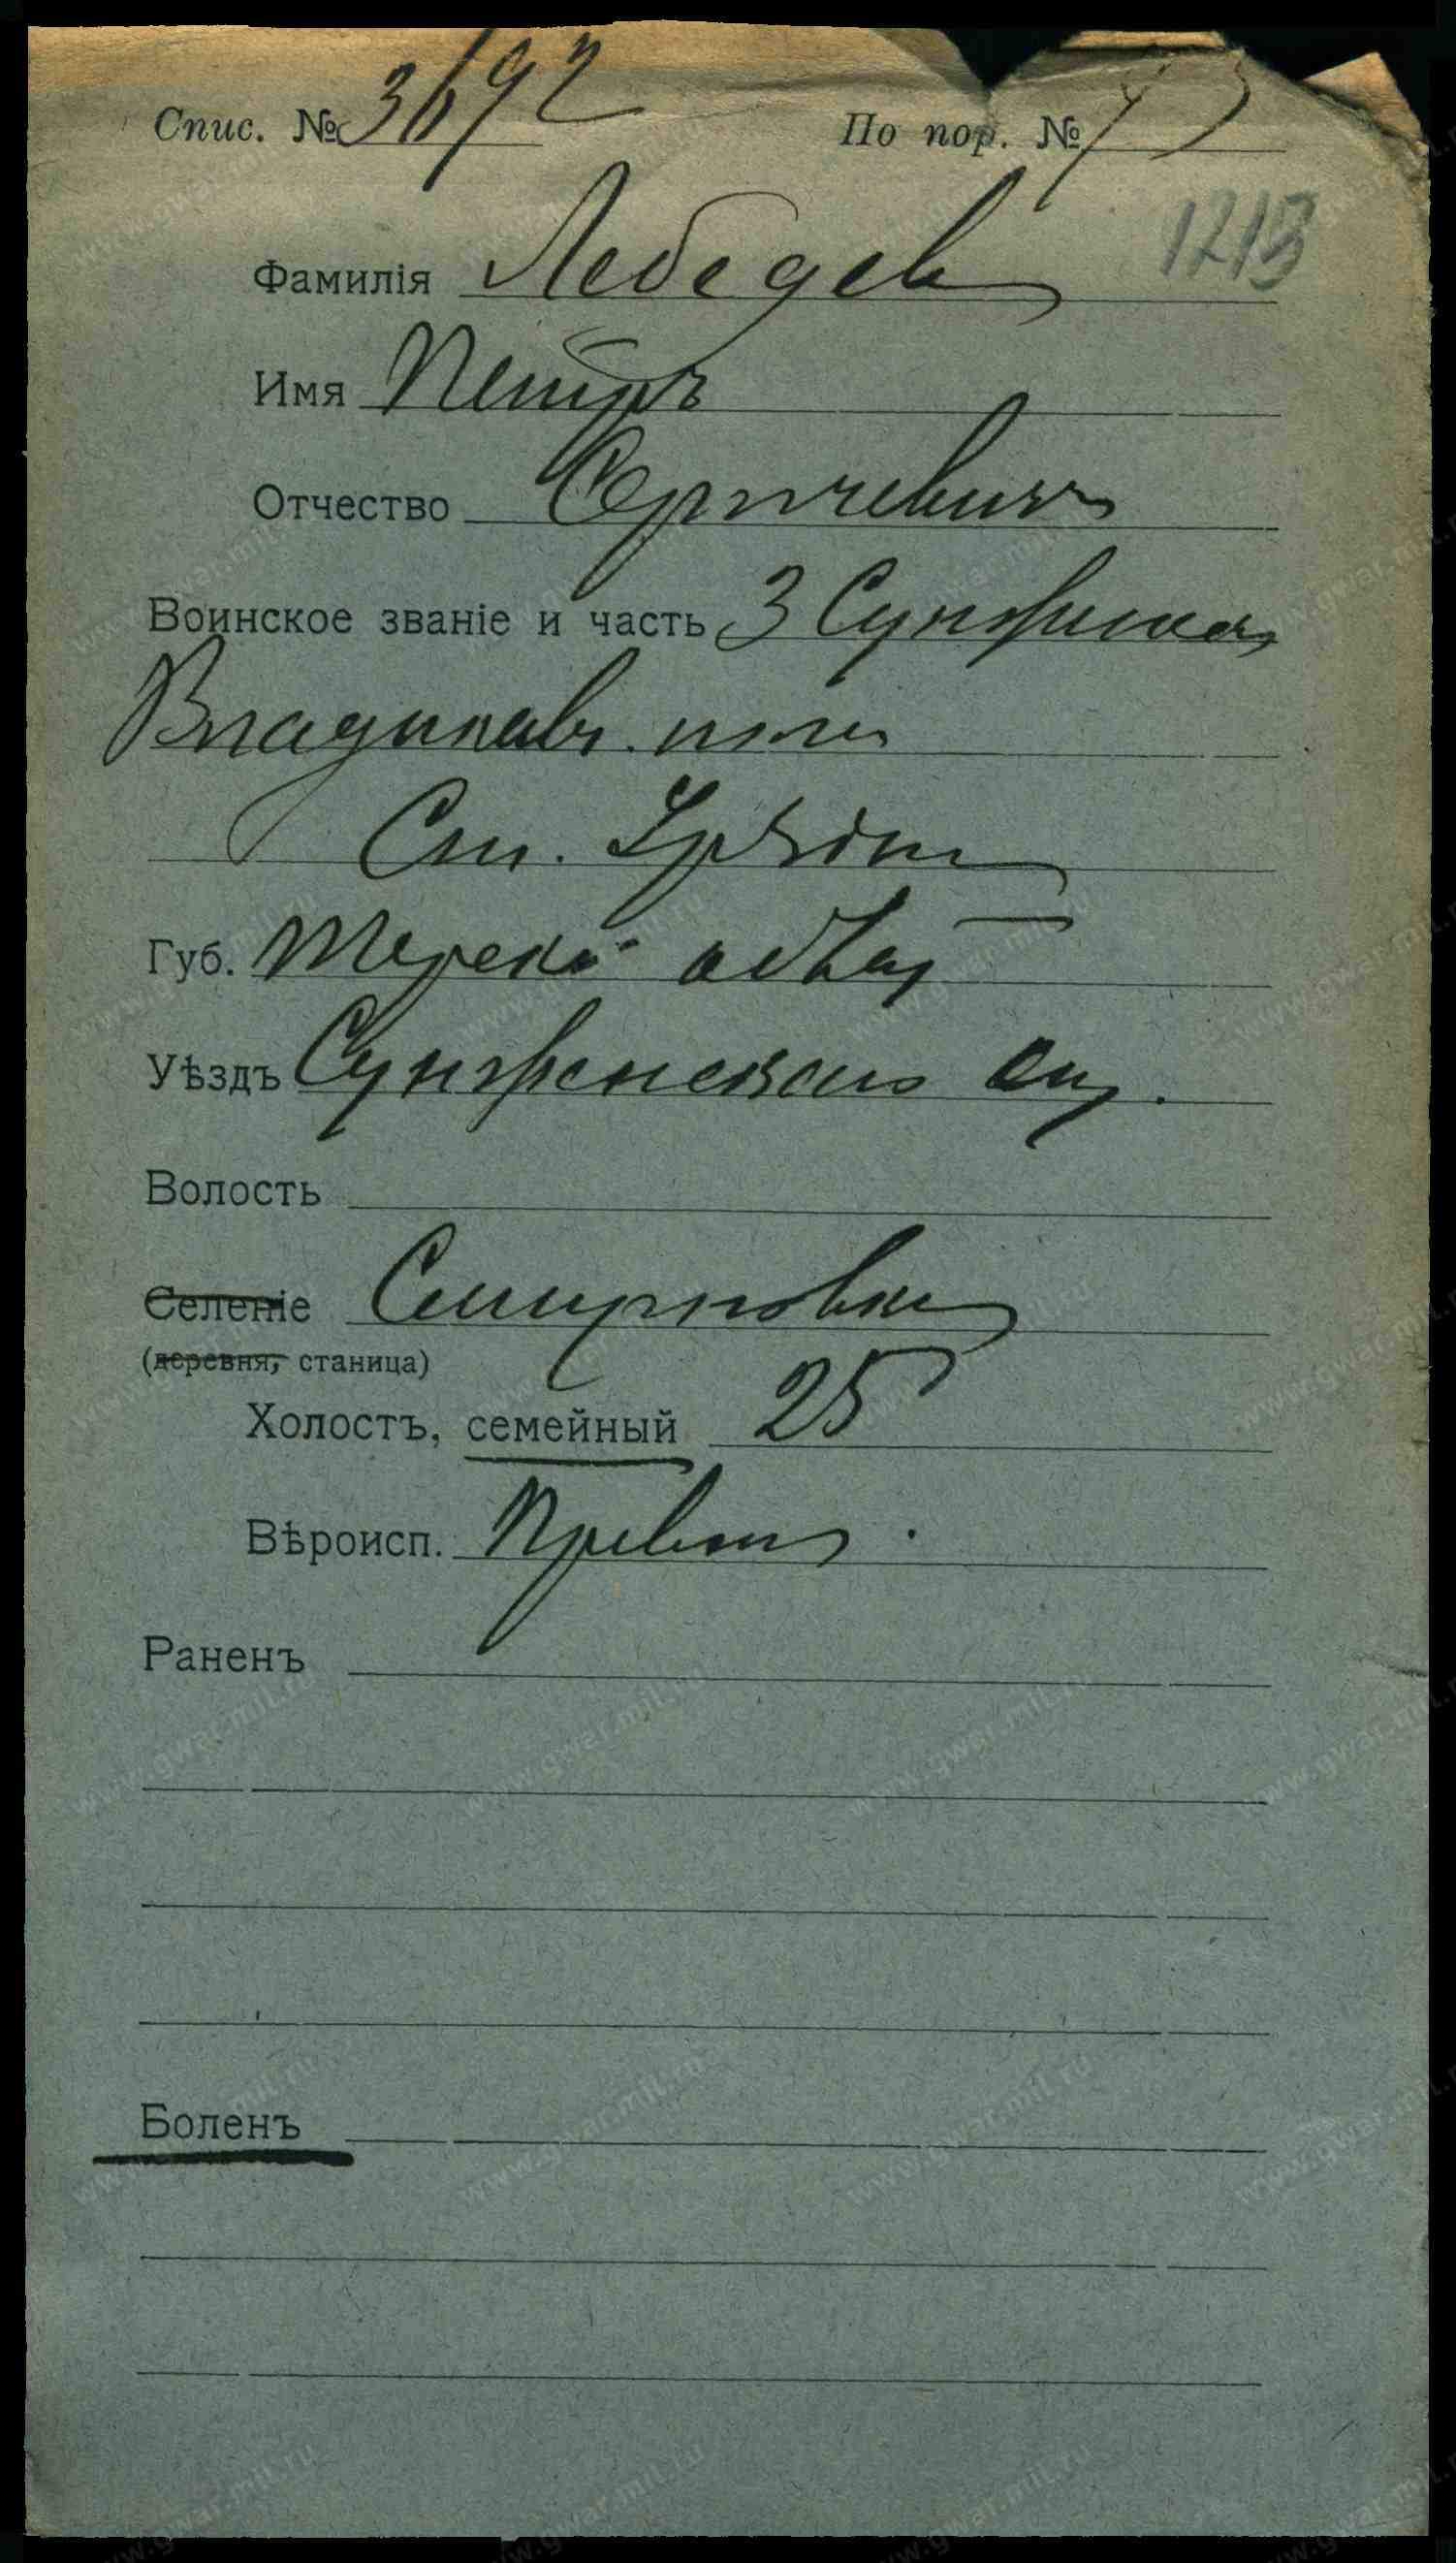 Спис. № 3692 По пор. №
1213
Фамилія Лебедев
Имя Петръ
Отчество Сергѣевичъ
Воинское званіе и часть 3 Сунженско
Владикавк. полк
Ст.
Губ. Терской област
Уѣздъ Сунженскаго отд.
Волость
Селеніе
(деревня, станица)
Холостъ, семейный 25
Вѣроисп. Правосл.
Раненъ
Боленъ
www.gwar.mil.ru